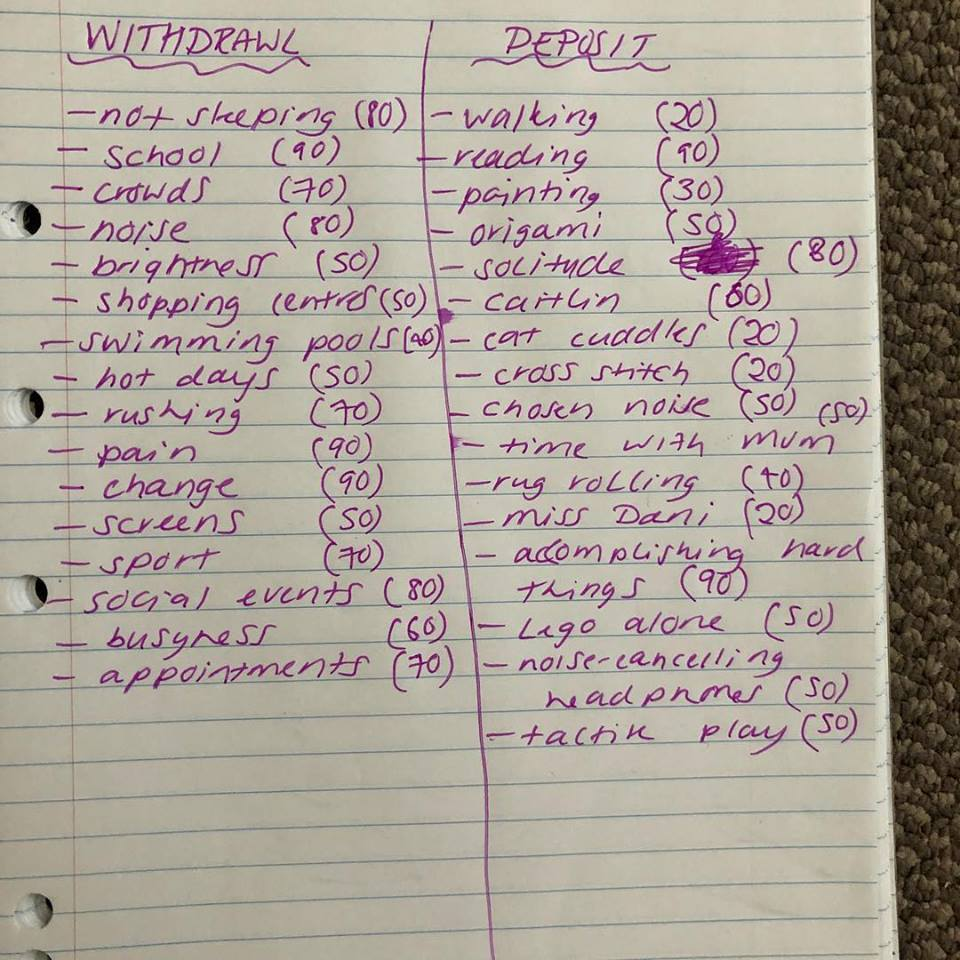 WITHDRAWL
- not sleeping (80)
- school (90)
- crowds (70)
- noise (80)
- brightness (50)
- shopping centres (50)
- swimming pools
- hot days (50)
- rushing (70)
- pain (90)
- change (90)
- screens (50)
- sport (70)
- social events (80)
- busyness (60)
- appointments (70)
DEPOSIT
- walking (20)
- reading (90)
- painting (30)
- origami (50)
- solitude (80)
- caitlin
- cat cuddles (20)
- cross stitch (20)
- chosen noise (50) (50)
- time with mum
- rug rolling (40)
- miss Dani (20)
- accomplishing hard
things (90)
- Lego alone (50)
- noise-cancelling
headphones (50)
- tactile play (50)